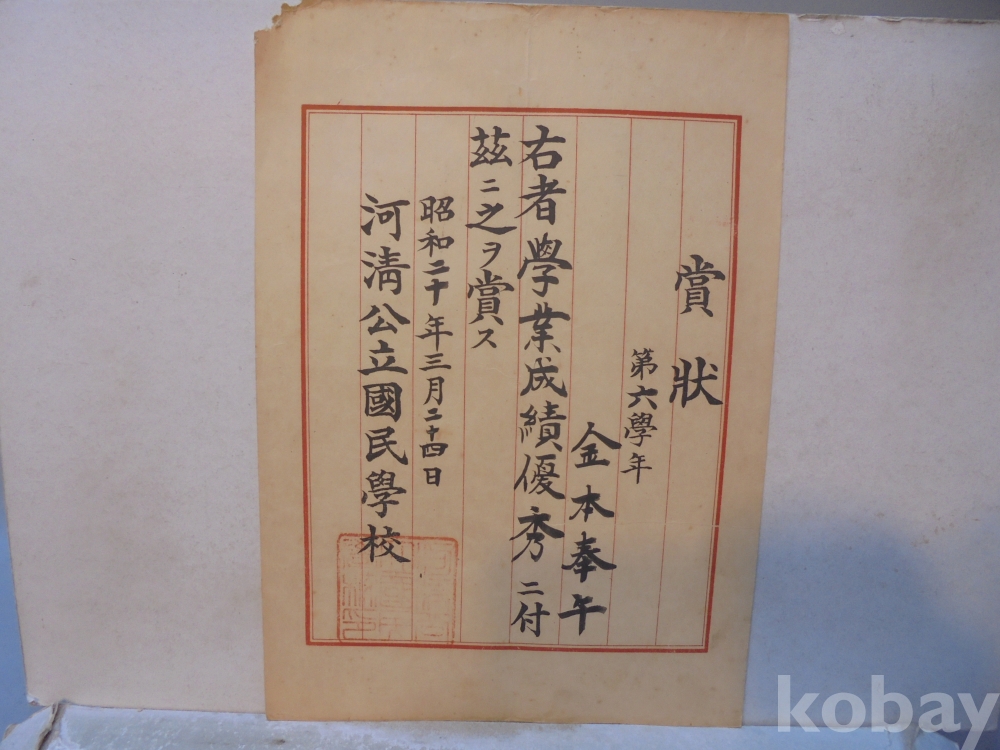 賞狀
第六學年
金本奉午
右者學業成績優秀ニ付
茲ニ之ヲ賞ス
昭和二十年三月二十四日
河淸公立國民學校
kobay